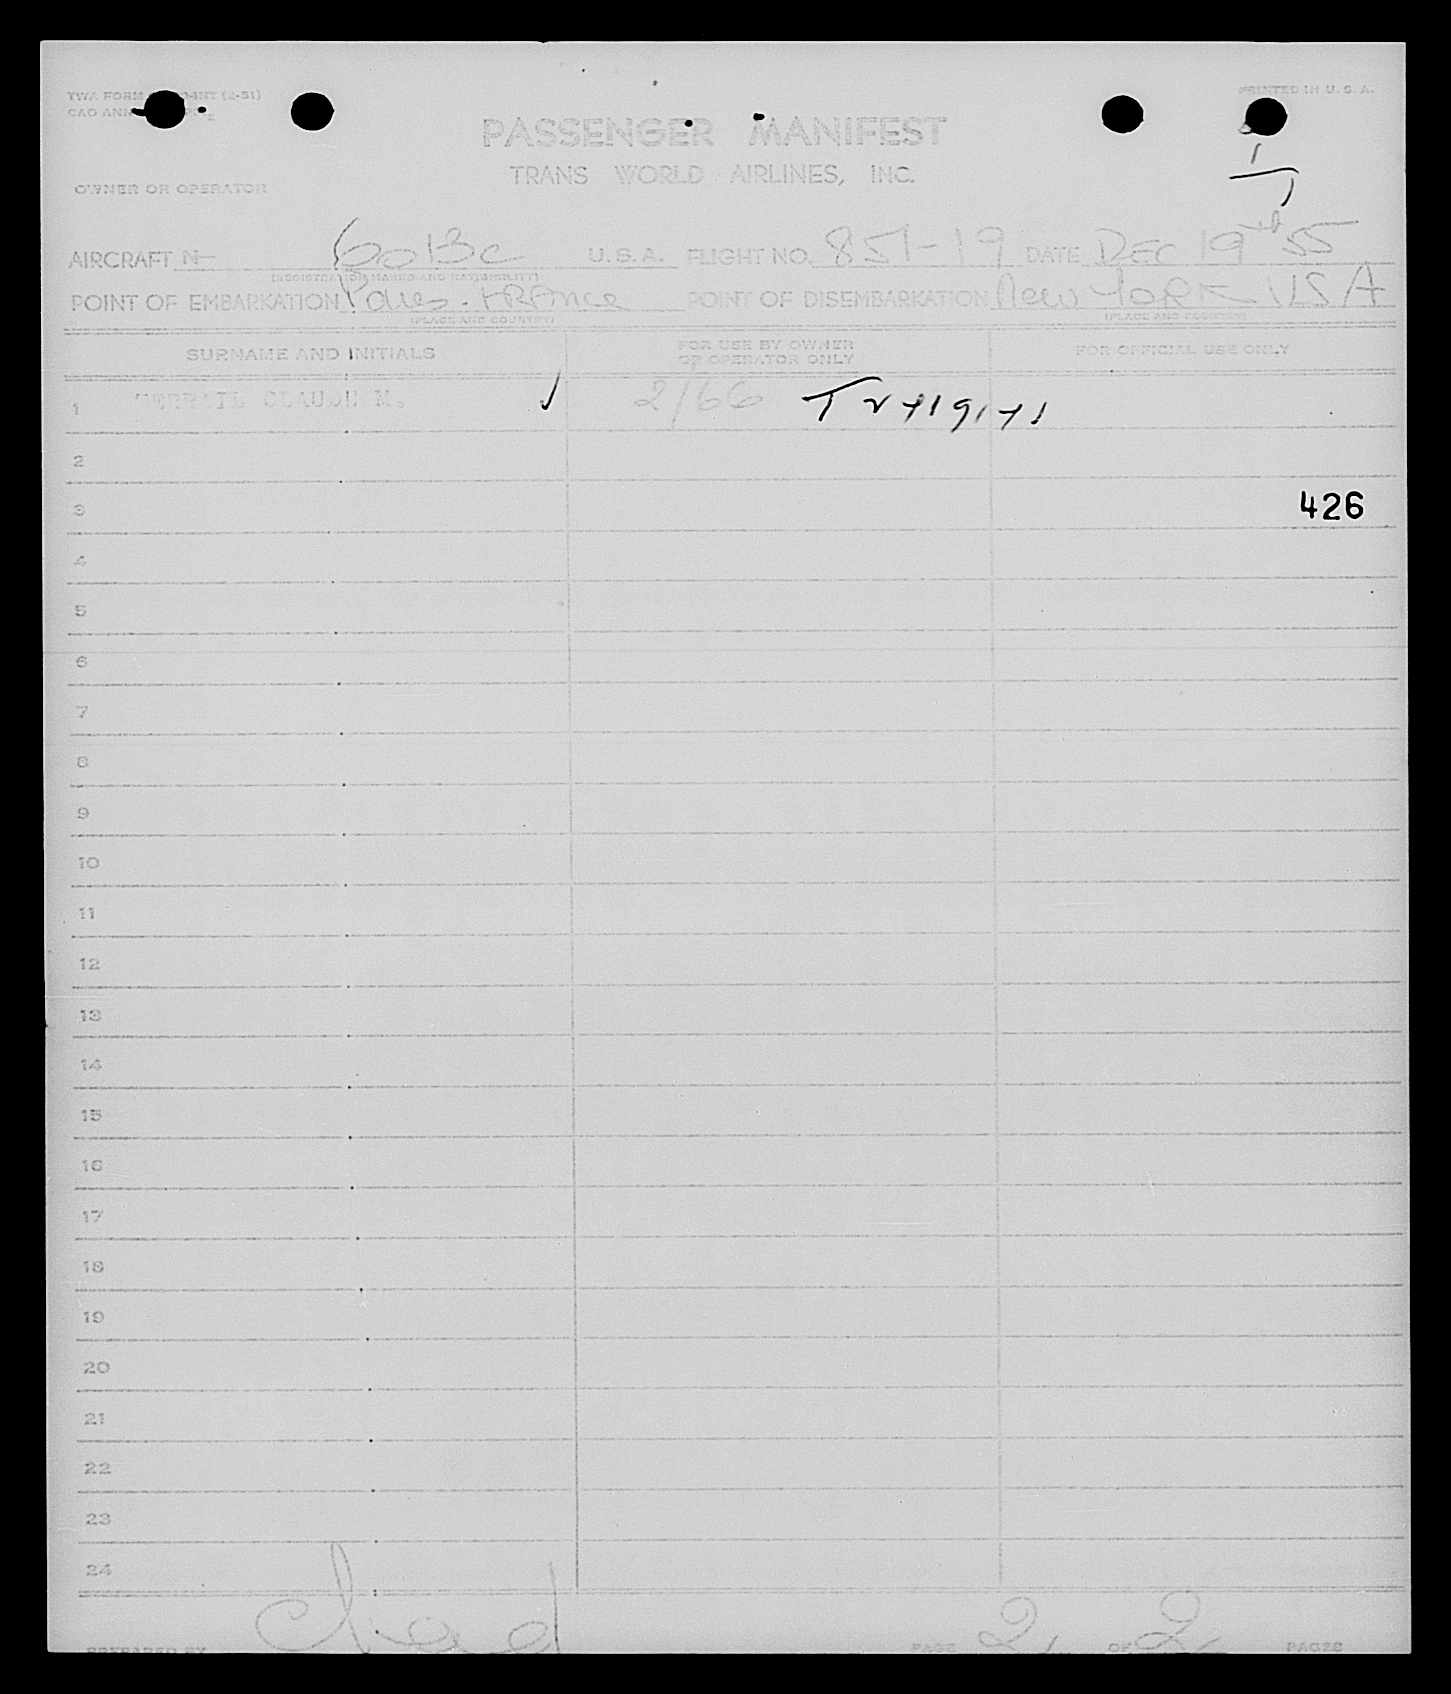 TWA FORM
PRINTED IN U. S. A.
PASSENGER MANIFEST
TRANS WORLD AIRLINES, INC.
1
1
OWNER OR OPERATOR
AIRCRAFT N 6013C U. S. A. FLIGHT NO. 851-19 DATE DEC 19 55
(REGISTRATION MARKS AND NATIONALITY)
POINT OF EMBARKATION Paris. FRAnce POINT OF DISEMBARKATION New YORK USA
(PLACE AND COUNTRY) (PLACE AND COUNTRY)
SURNAME AND INITIALS FOR USE BY OWNER OR OPERATOR ONLY FOR OFFICIAL USE ONLY
1 TERRAIL CLAUDE M. 2/66
2
3 426
4
5
6
7
8
9
10
11
12
13
14
15
16
17
18
19
20
21
22
23
24
PREPARED BY PAGE 2 OF 2 PAGES